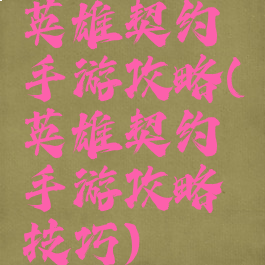 英雄契约
手游攻略(
英雄契约
手游攻略
技巧)